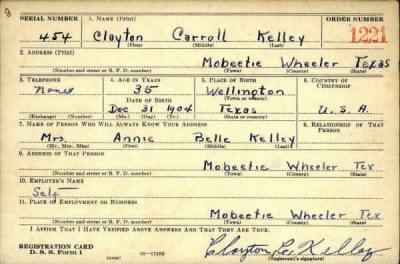 8
SERIAL NUMBER 1. NAME (Print) ORDER NUMBER
454 Clayton Carroll Kelley 1221
(First) (Middle) (Last)
2. ADDRESS (Print)
Mobeetie Wheeler Texas
(Number and street or R. F. D. number) (Town) (County) (State)
3. TELEPHONE 4. AGE IN YEARS 5. PLACE OF BIRTH 6. COUNTRY OF CITIZENSHIP
None 35 Wellington
DATE OF BIRTH (Town or county)
Dec 31 1904 Texas U. S. A.
(Exchange) (Number) (Mo.) (Day) (Yr.) (State or country)
7. NAME OF PERSON WHO WILL ALWAYS KNOW YOUR ADDRESS 8. RELATIONSHIP OF THAT PERSON
Mrs. Annie Belle Kelley
(Mr., Mrs., Miss) (First) (Middle) (Last)
9. ADDRESS OF THAT PERSON
Mobeetie Wheeler Tex
(Number and street or R. F. D. number) (Town) (County) (State)
10. EMPLOYER'S NAME
Self
11. PLACE OF EMPLOYMENT OR BUSINESS
Mobeetie Wheeler Tex
(Number and street or R. F. D. number) (Town) (County) (State)
I AFFIRM THAT I HAVE VERIFIED ABOVE ANSWERS AND THAT THEY ARE TRUE.
REGISTRATION CARD Clayton C. Kelley
D. S. S. Form 1 (over) (Registrant's signature)